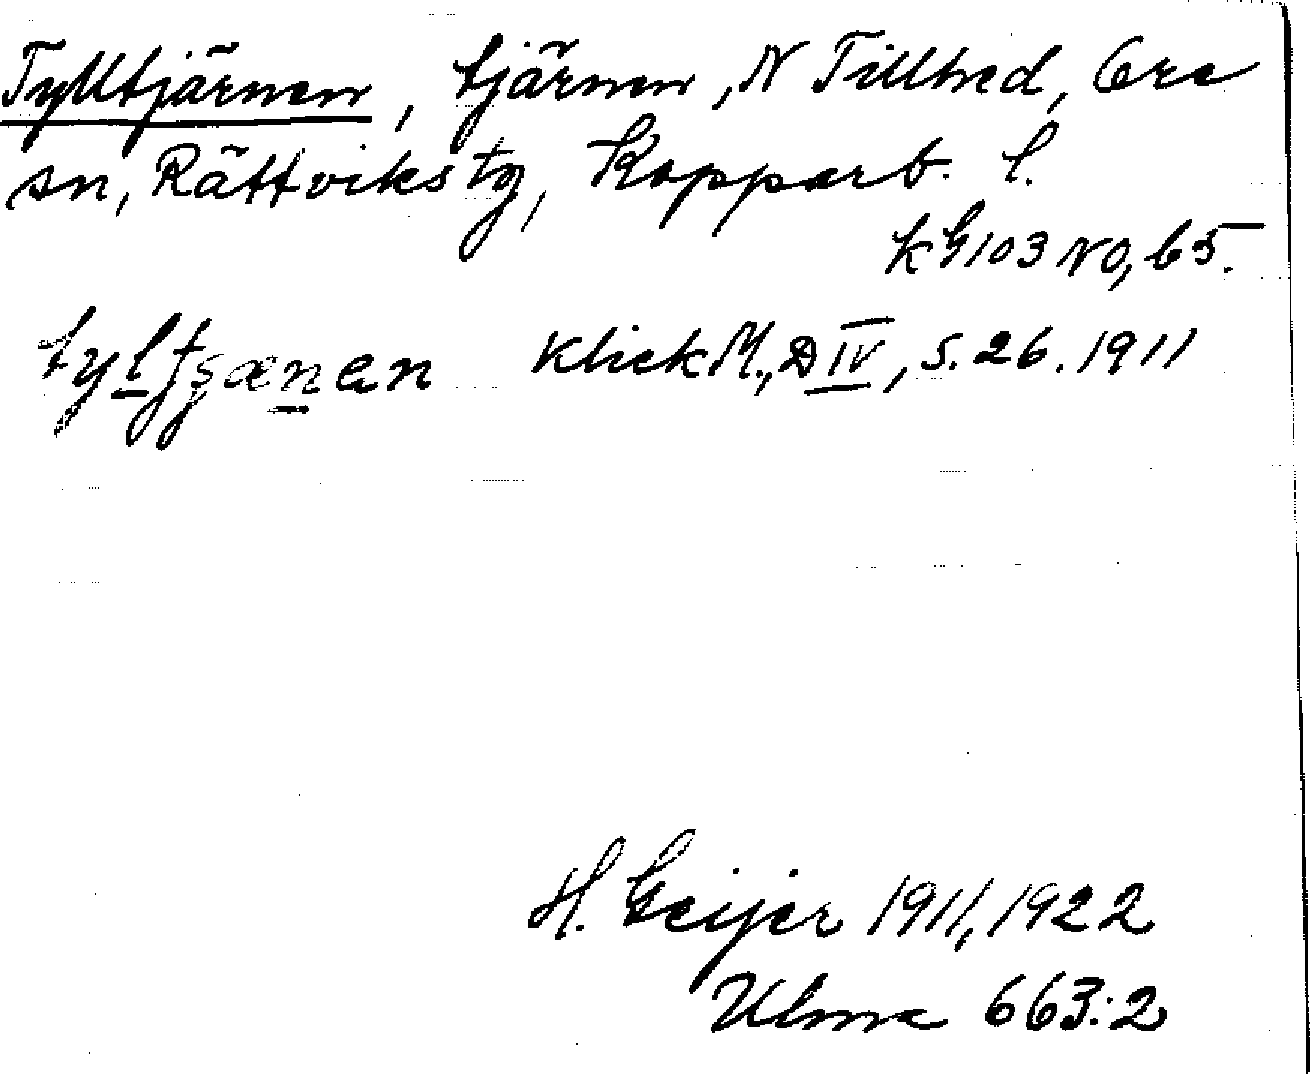 Tylltjärnen, tjärnen, N Tillhed, Ore
sn, Rättviks tg, Kopparb. l.
kG 103 NO, b5.
tyltʂænen Klick M., D IV, s. 26. 1911
H. Geijer 1911, 1922
Ulma 663:2